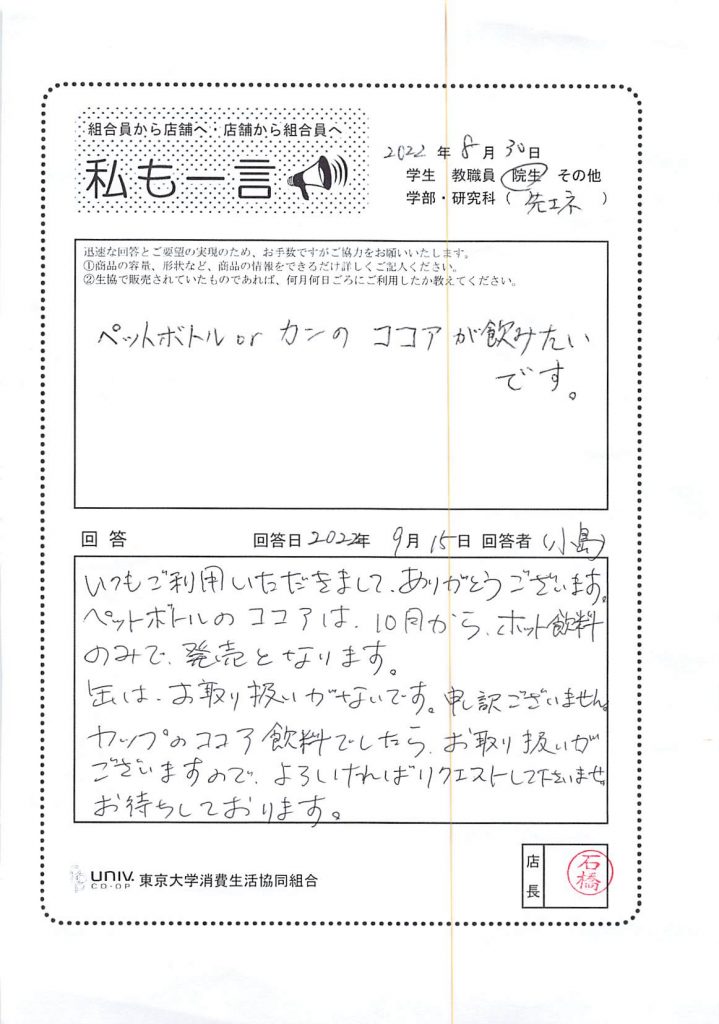 組合員から店舗へ・店舗から組合員へ
私も一言
2022年8月30日
学生 教職員 院生 その他
学部・研究科（ 先エネ ）
迅速な回答とご要望の実現のため、お手数ですがご協力をお願いいたします。
①商品の容量、形状など、商品の情報をできるだけ詳しくご記入ください。
②生協で販売されていたものであれば、何月何日ごろにご利用したか教えてください。
ペットボトル or カンの ココアが飲みたい
です。
回答 回答日2022年 9月15日 回答者（小島）
いつもご利用いただきまして、ありがとうございます。
ペットボトルのココアは、10月から、ホット飲料
のみで、発売となります。
缶は、お取り扱いがないです。申し訳ございません。
カップのココア飲料でしたら、お取り扱いが
ございますので、よろしければリクエストして下さいませ。
お待ちしております。
UNIV.
CO-OP 東京大学消費生活協同組合
店長
石橋